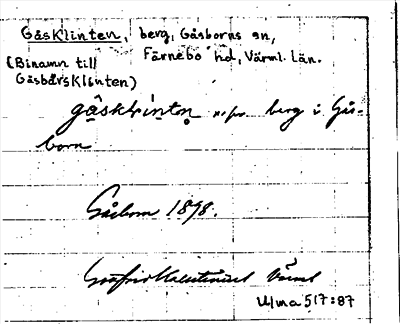 Gåsklinten, berg, Gåsborns sn,
Färnebo hd, Värml. län.
(Binamn till
Gåsbårsklinten)
gåsklinton n. pr. berg i Gås-
born
Gåsborn 1898.
Gottfrid Kallstenius Värml
Ulma 517:87